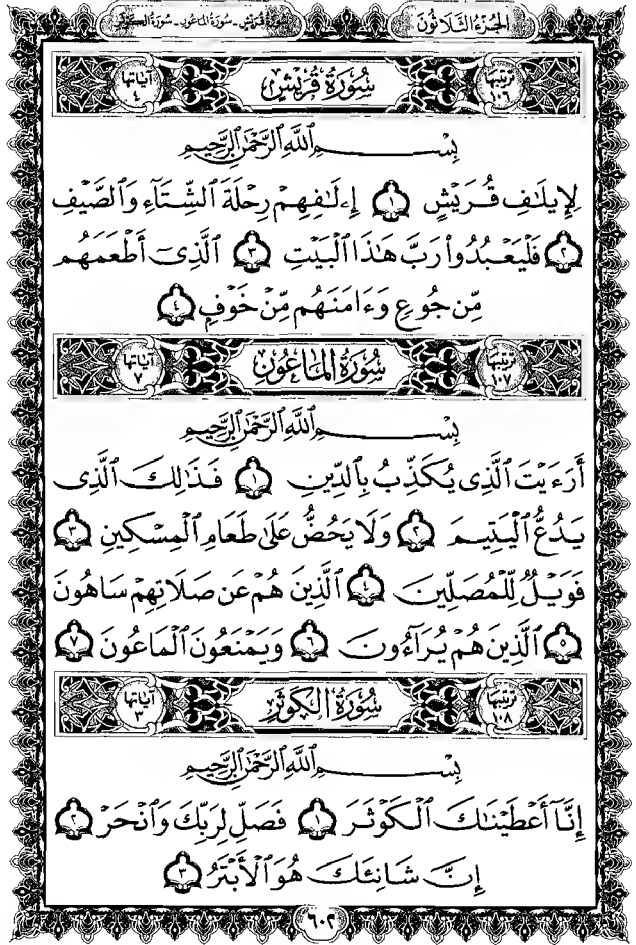 الجزء الثلاثون
سورة قريش - سورة الماعون - سورة الكوثر
ترتيبها ١٠٦ سُورَةُ قُرَيْشٍ آياتها ٤
بِسْمِ ٱللَّهِ ٱلرَّحْمَٰنِ ٱلرَّحِيمِ
لِإِيلَٰفِ قُرَيْشٍ ١ إِۦلَٰفِهِمْ رِحْلَةَ ٱلشِّتَآءِ وَٱلصَّيْفِ
٢ فَلْيَعْبُدُوا۟ رَبَّ هَٰذَا ٱلْبَيْتِ ٣ ٱلَّذِىٓ أَطْعَمَهُم
مِّن جُوعٍ وَءَامَنَهُم مِّنْ خَوْفٍۭ ٤
ترتيبها ١٠٧ سُورَةُ الماعُونِ آياتها ٧
بِسْمِ ٱللَّهِ ٱلرَّحْمَٰنِ ٱلرَّحِيمِ
أَرَءَيْتَ ٱلَّذِى يُكَذِّبُ بِٱلدِّينِ ١ فَذَٰلِكَ ٱلَّذِى
يَدُعُّ ٱلْيَتِيمَ ٢ وَلَا يَحُضُّ عَلَىٰ طَعَامِ ٱلْمِسْكِينِ ٣
فَوَيْلٌ لِّلْمُصَلِّينَ ٤ ٱلَّذِينَ هُمْ عَن صَلَاتِهِمْ سَاهُونَ
٥ ٱلَّذِينَ هُمْ يُرَآءُونَ ٦ وَيَمْنَعُونَ ٱلْمَاعُونَ ٧
ترتيبها ١٠٨ سُورَةُ الكَوثَرِ آياتها ٣
بِسْمِ ٱللَّهِ ٱلرَّحْمَٰنِ ٱلرَّحِيمِ
إِنَّآ أَعْطَيْنَٰكَ ٱلْكَوْثَرَ ١ فَصَلِّ لِرَبِّكَ وَٱنْحَرْ ٢
إِنَّ شَانِئَكَ هُوَ ٱلْأَبْتَرُ ٣
٦٠٢